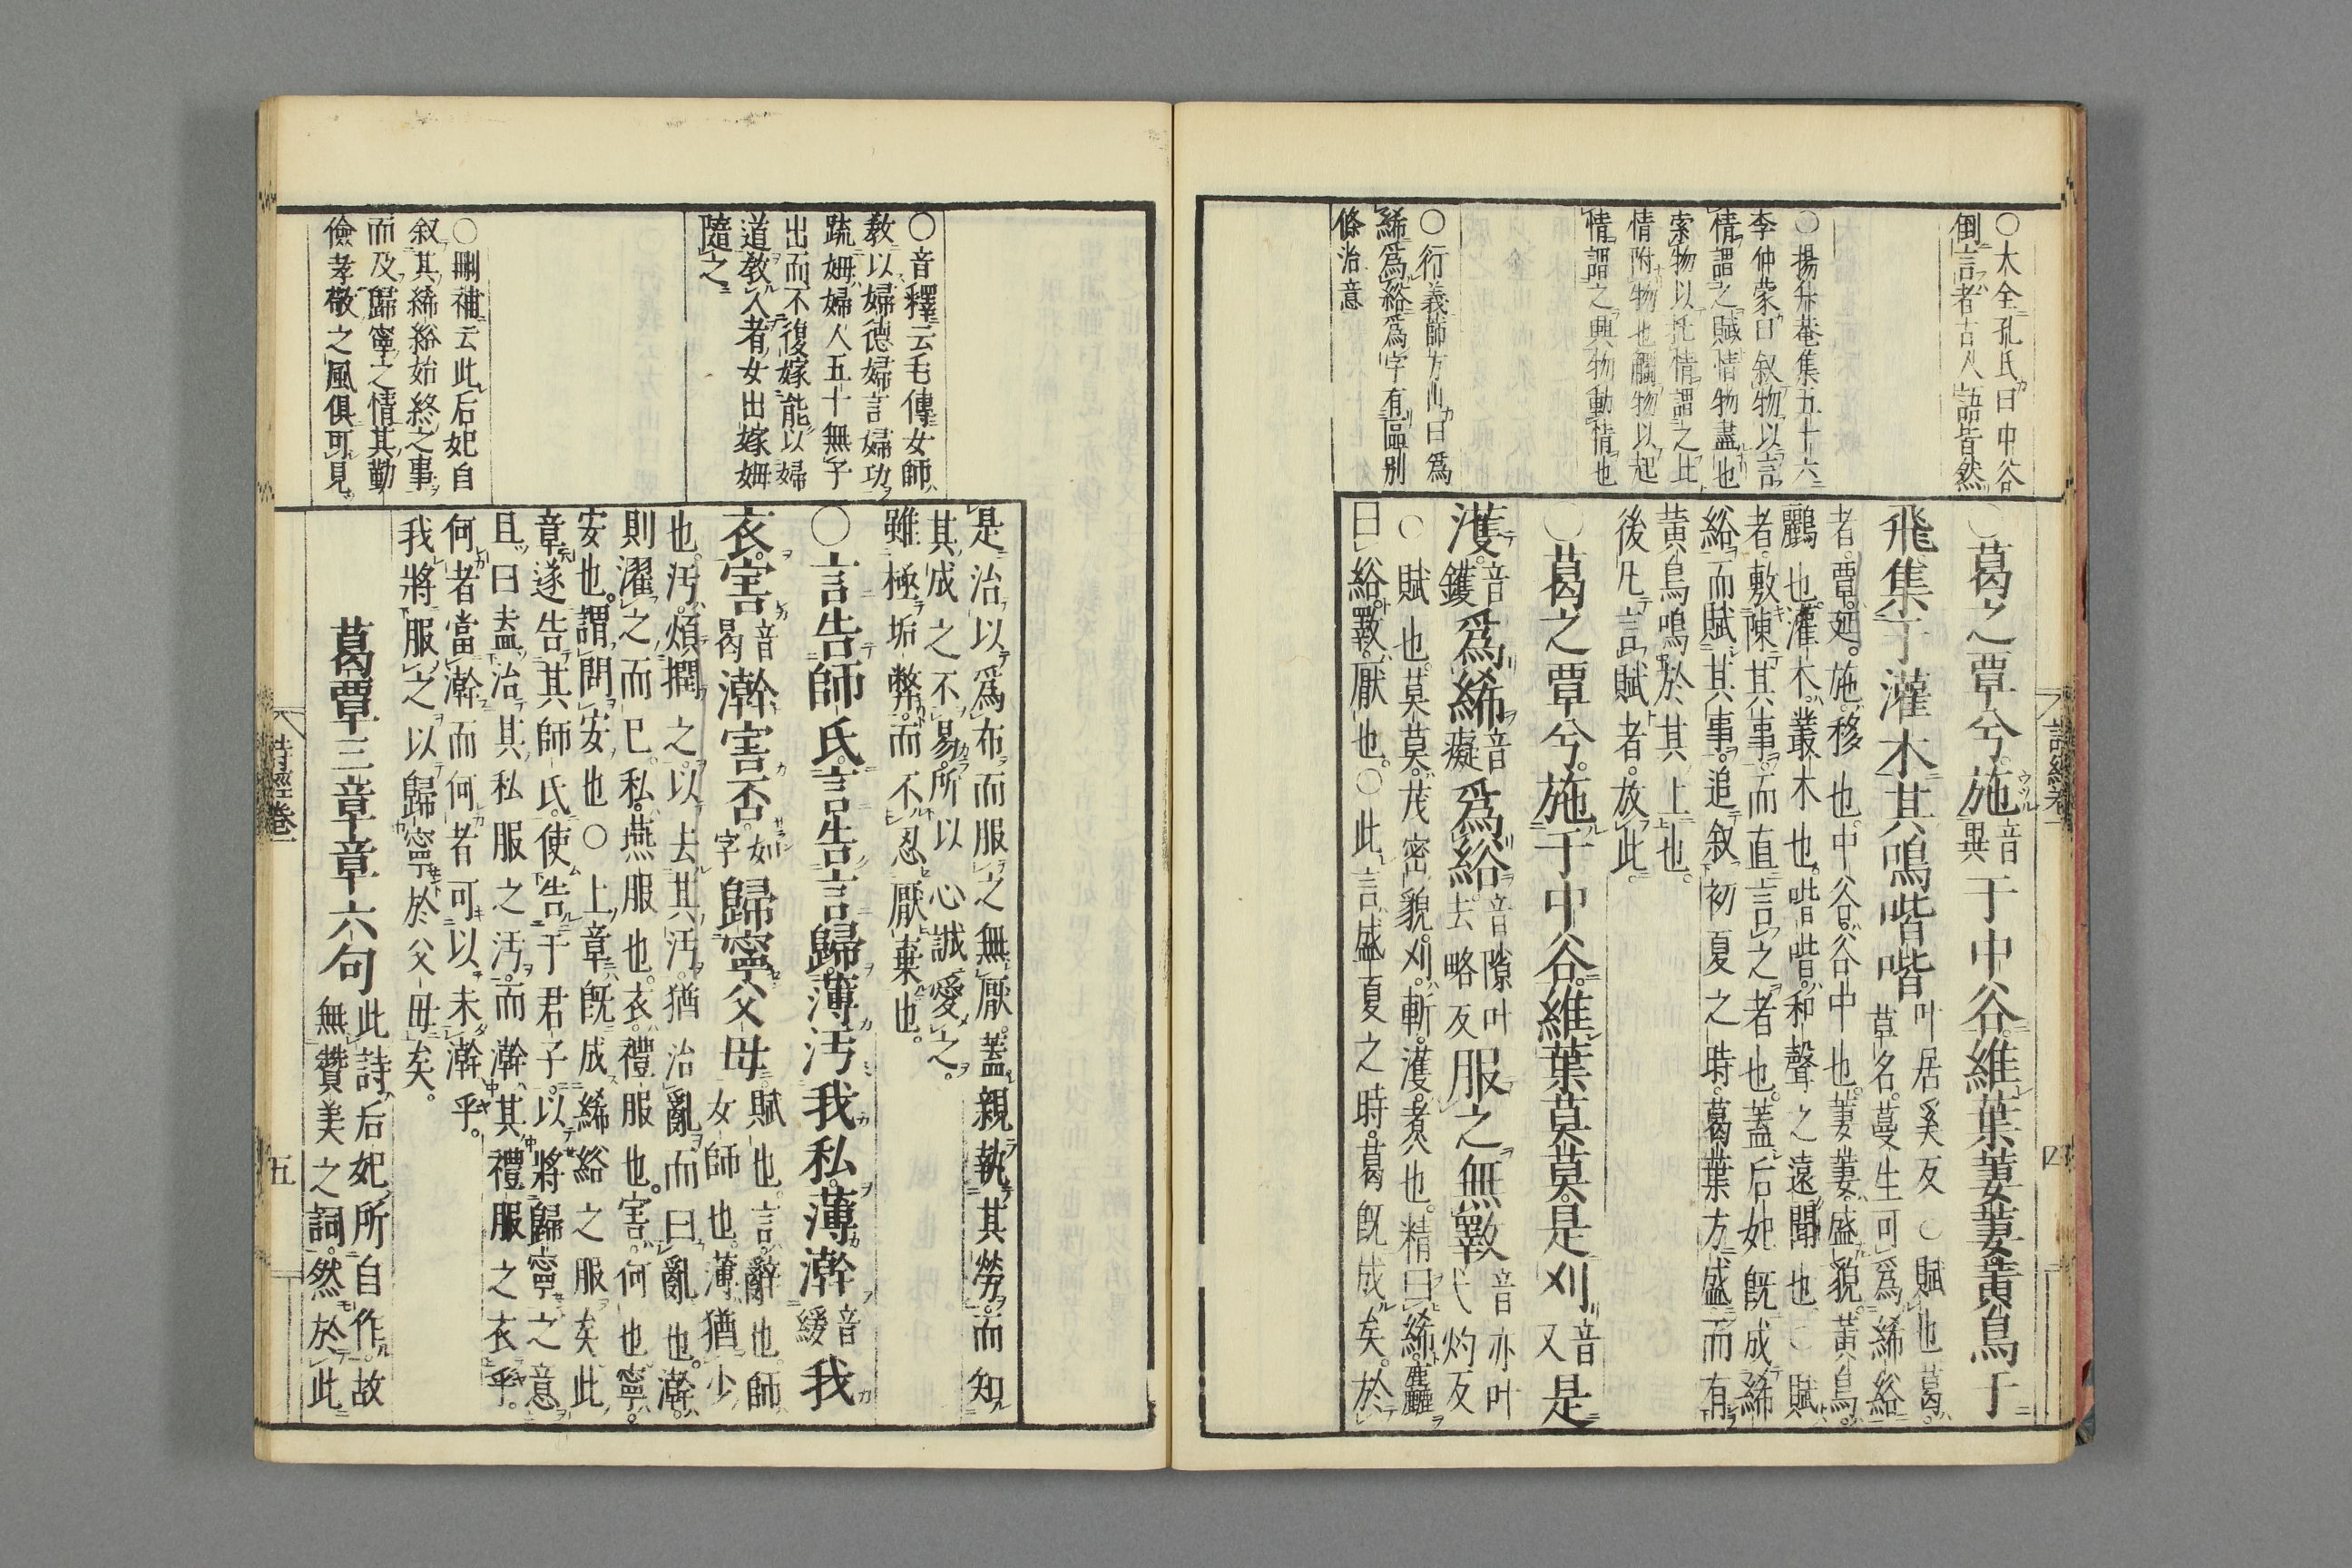 ○大全孔氏曰中谷
倒言者古人語皆然
○揚升菴集五十六
李仲蒙曰叙物以言
情謂之賦情物盡也
索物以托情謂之比
情附物也觸物以起
情謂之興物動情也
○行義節方川曰爲
絺爲綌爲字有區別
條治意
○葛之覃兮施音異于中谷維葉萋萋黃鳥于
飛集于灌木其鳴喈喈叶居奚反○賦也葛
草名蔓生可爲絺綌
者覃延施移也中谷谷中也萋萋盛貌黃鳥
鸝也灌木叢木也喈喈和聲之遠聞也○賦
者敷陳其事而直言之者也蓋后妃既成絺
綌而賦其事追叙初夏之時葛葉方盛而有
黃鳥鳴於其上也
後凡言賦者放此
○葛之覃兮施于中谷維葉莫莫是刈音又是
濩音鑊爲絺音癡爲綌音隙叶去略反服之無斁音亦叶弋灼反
○賦也莫莫茂密貌刈斬濩煑也精曰絺麤
曰綌斁厭也○此言盛夏之時葛既成矣於
詩經卷一 四
○音釋云毛傳女師
教以婦德婦言婦功
疏姆婦人五十無子
出而不復嫁能以婦
道教人者女出嫁姆
隨之
○刪補云此后妃自
叙其絺綌始終之事
而及歸寧之情其勤
儉孝敬之風俱可見
是治以爲布而服之無厭蓋親執其勞而知
其成之不易所以心誠愛之
雖極垢弊而不忍厭棄也
○言告師氏言告言歸薄汚我私薄澣音緩我
衣害音曷澣害否如字歸寧父母賦也言辭也師
女師也薄猶少
也汚煩撋之以去其汚猶治亂而曰亂也澣
則濯之而已私燕服也衣禮服也害何也寧
安也謂問安也○上章既成絺綌之服矣此
章遂告其師氏使告于君子以將歸寧之意
且曰盍治其私服之汚而澣其禮服之衣乎
何者當澣而何者可以未澣乎
我將服之以歸寧於父母矣
葛覃三章章六句此詩后妃所自作故
無贊美之詞然於此
詩經卷一 五